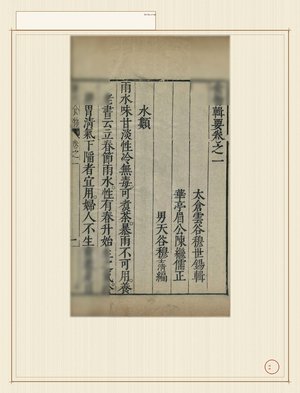 輯要卷之一
太倉雲谷穆世錫輯
華亭眉公陳繼儒正
男天谷穆清編
水類
雨水味甘淡性冷無毒可煮茶暴雨不可用養
老書云立春節雨水性有春升始生之氣
胃清氣下陷者宜用婦人不生
食物
卷之一
一